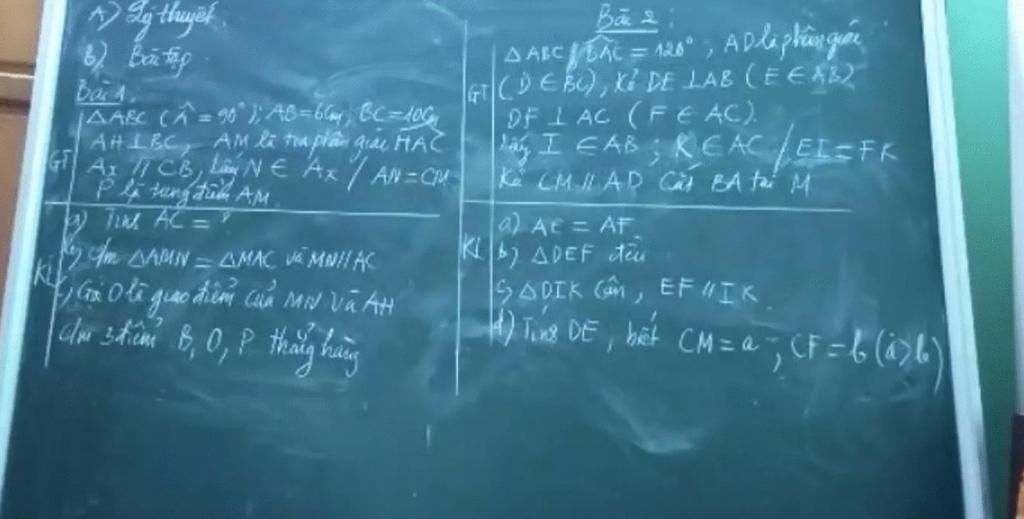 A) Lý thuyết
B) Bài tập
Bài 1:
GT
ΔABC (Â = 90°); AB=6cm, BC=10cm
AH⊥BC, AM là tia phân giác HAC
Ax // CB, Lấy N ∈ Ax / AN=CM
P là trung điểm AM.
KL
a) Tính AC = ?
b) c/m ΔAMN = ΔMAC và MN//AC
c) Gọi O là giao điểm của MN và AH
c/m 3 điểm B, O, P thẳng hàng
Bài 2:
GT
ΔABC, BAC = 120°, AD là phân giác
(D ∈ BC), Kẻ DE ⊥AB (E ∈ AB)
DF ⊥ AC (F ∈ AC).
Lấy I ∈ AB; K ∈ AC / EI = FK
Kẻ CM // AD cắt BA tại M
KL
a) AE = AF.
b) ΔDEF đều
c) ΔDIK cân, EF // IK
d) Tính DE, biết CM = a, CF = b (a>b)